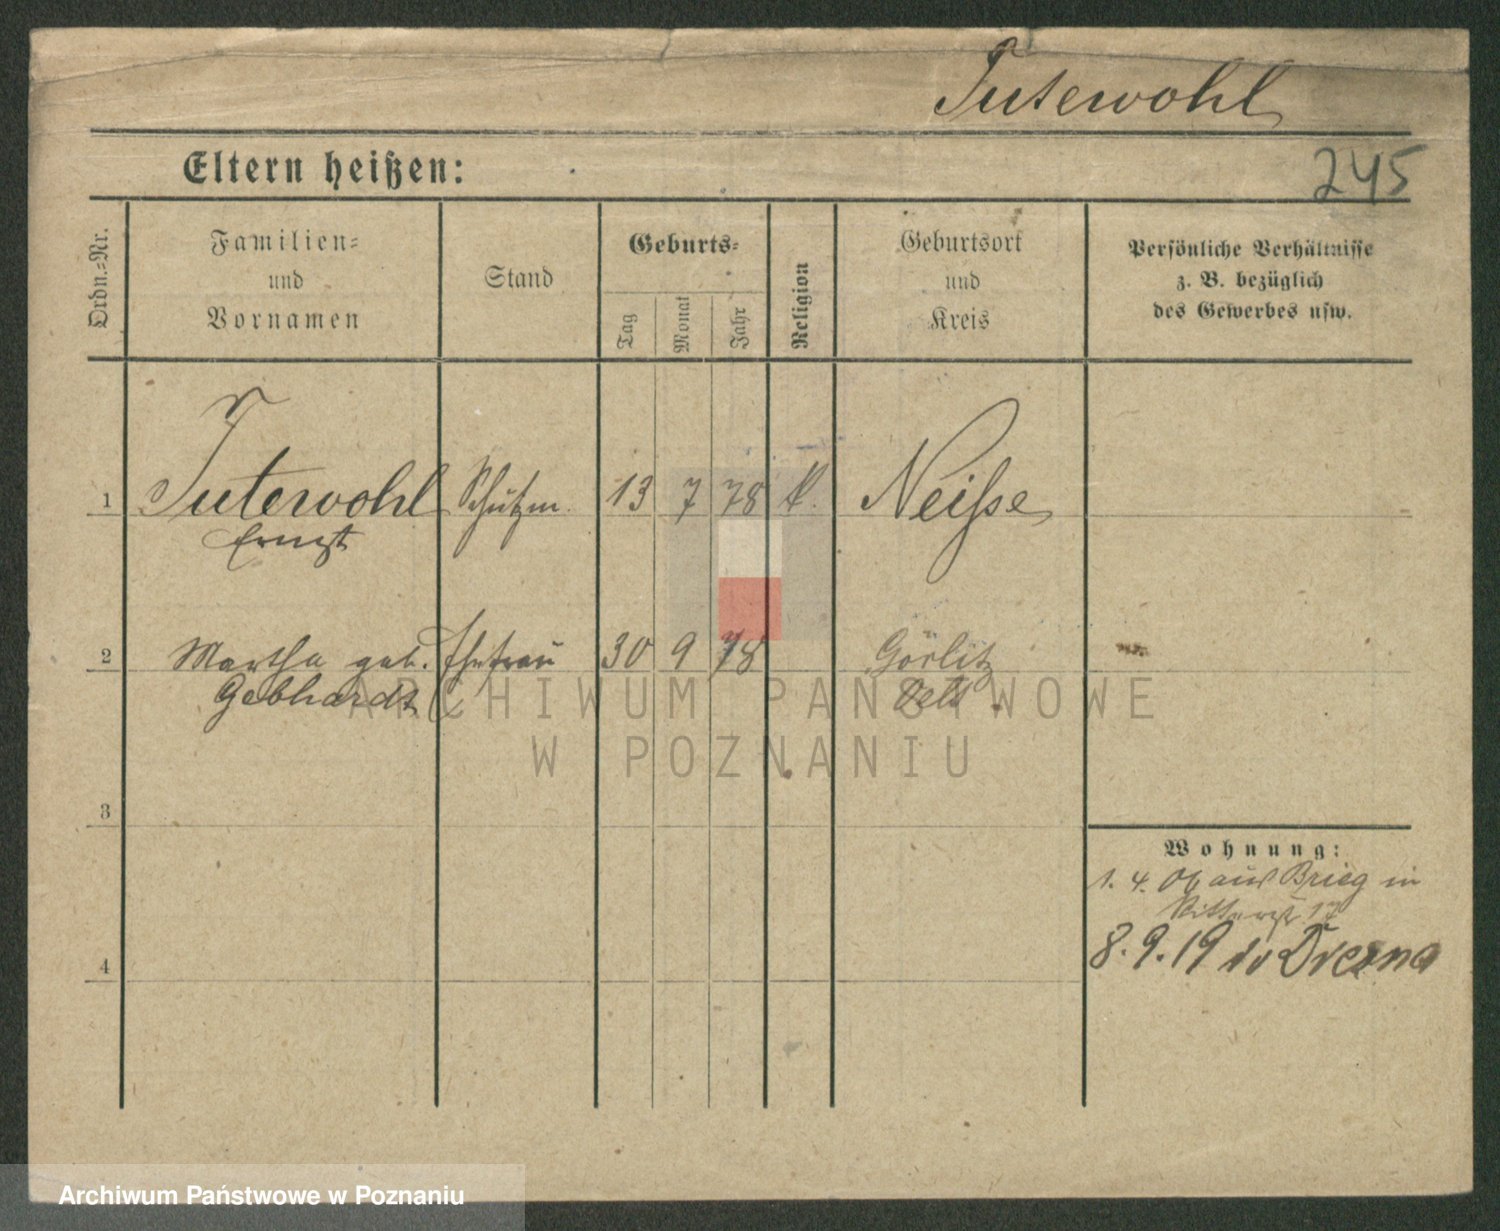 Tutewohl
Eltern heißen:
245
Ordn.=Nr.
Familien=
und
Vornamen
Stand
Geburts=
Tag
Monat
Jahr
Religion
Geburtsort
und
Kreis
Persönliche Verhältnisse
z. B. bezüglich
des Gewerbes usw.
1 Tutewohl Schutzm. 13 7 78 k. Neiße
Ernst
2 Martha geb. Ehefrau 30 9 78 Görlitz
Gebhardt Oels
3
4
Wohnung:
1. 4. 06 aus Brieg in
Ritterstr. 17
8. 9. 19
ARCHIWUM PAŃSTWOWE
W POZNANIU
Archiwum Państwowe w Poznaniu